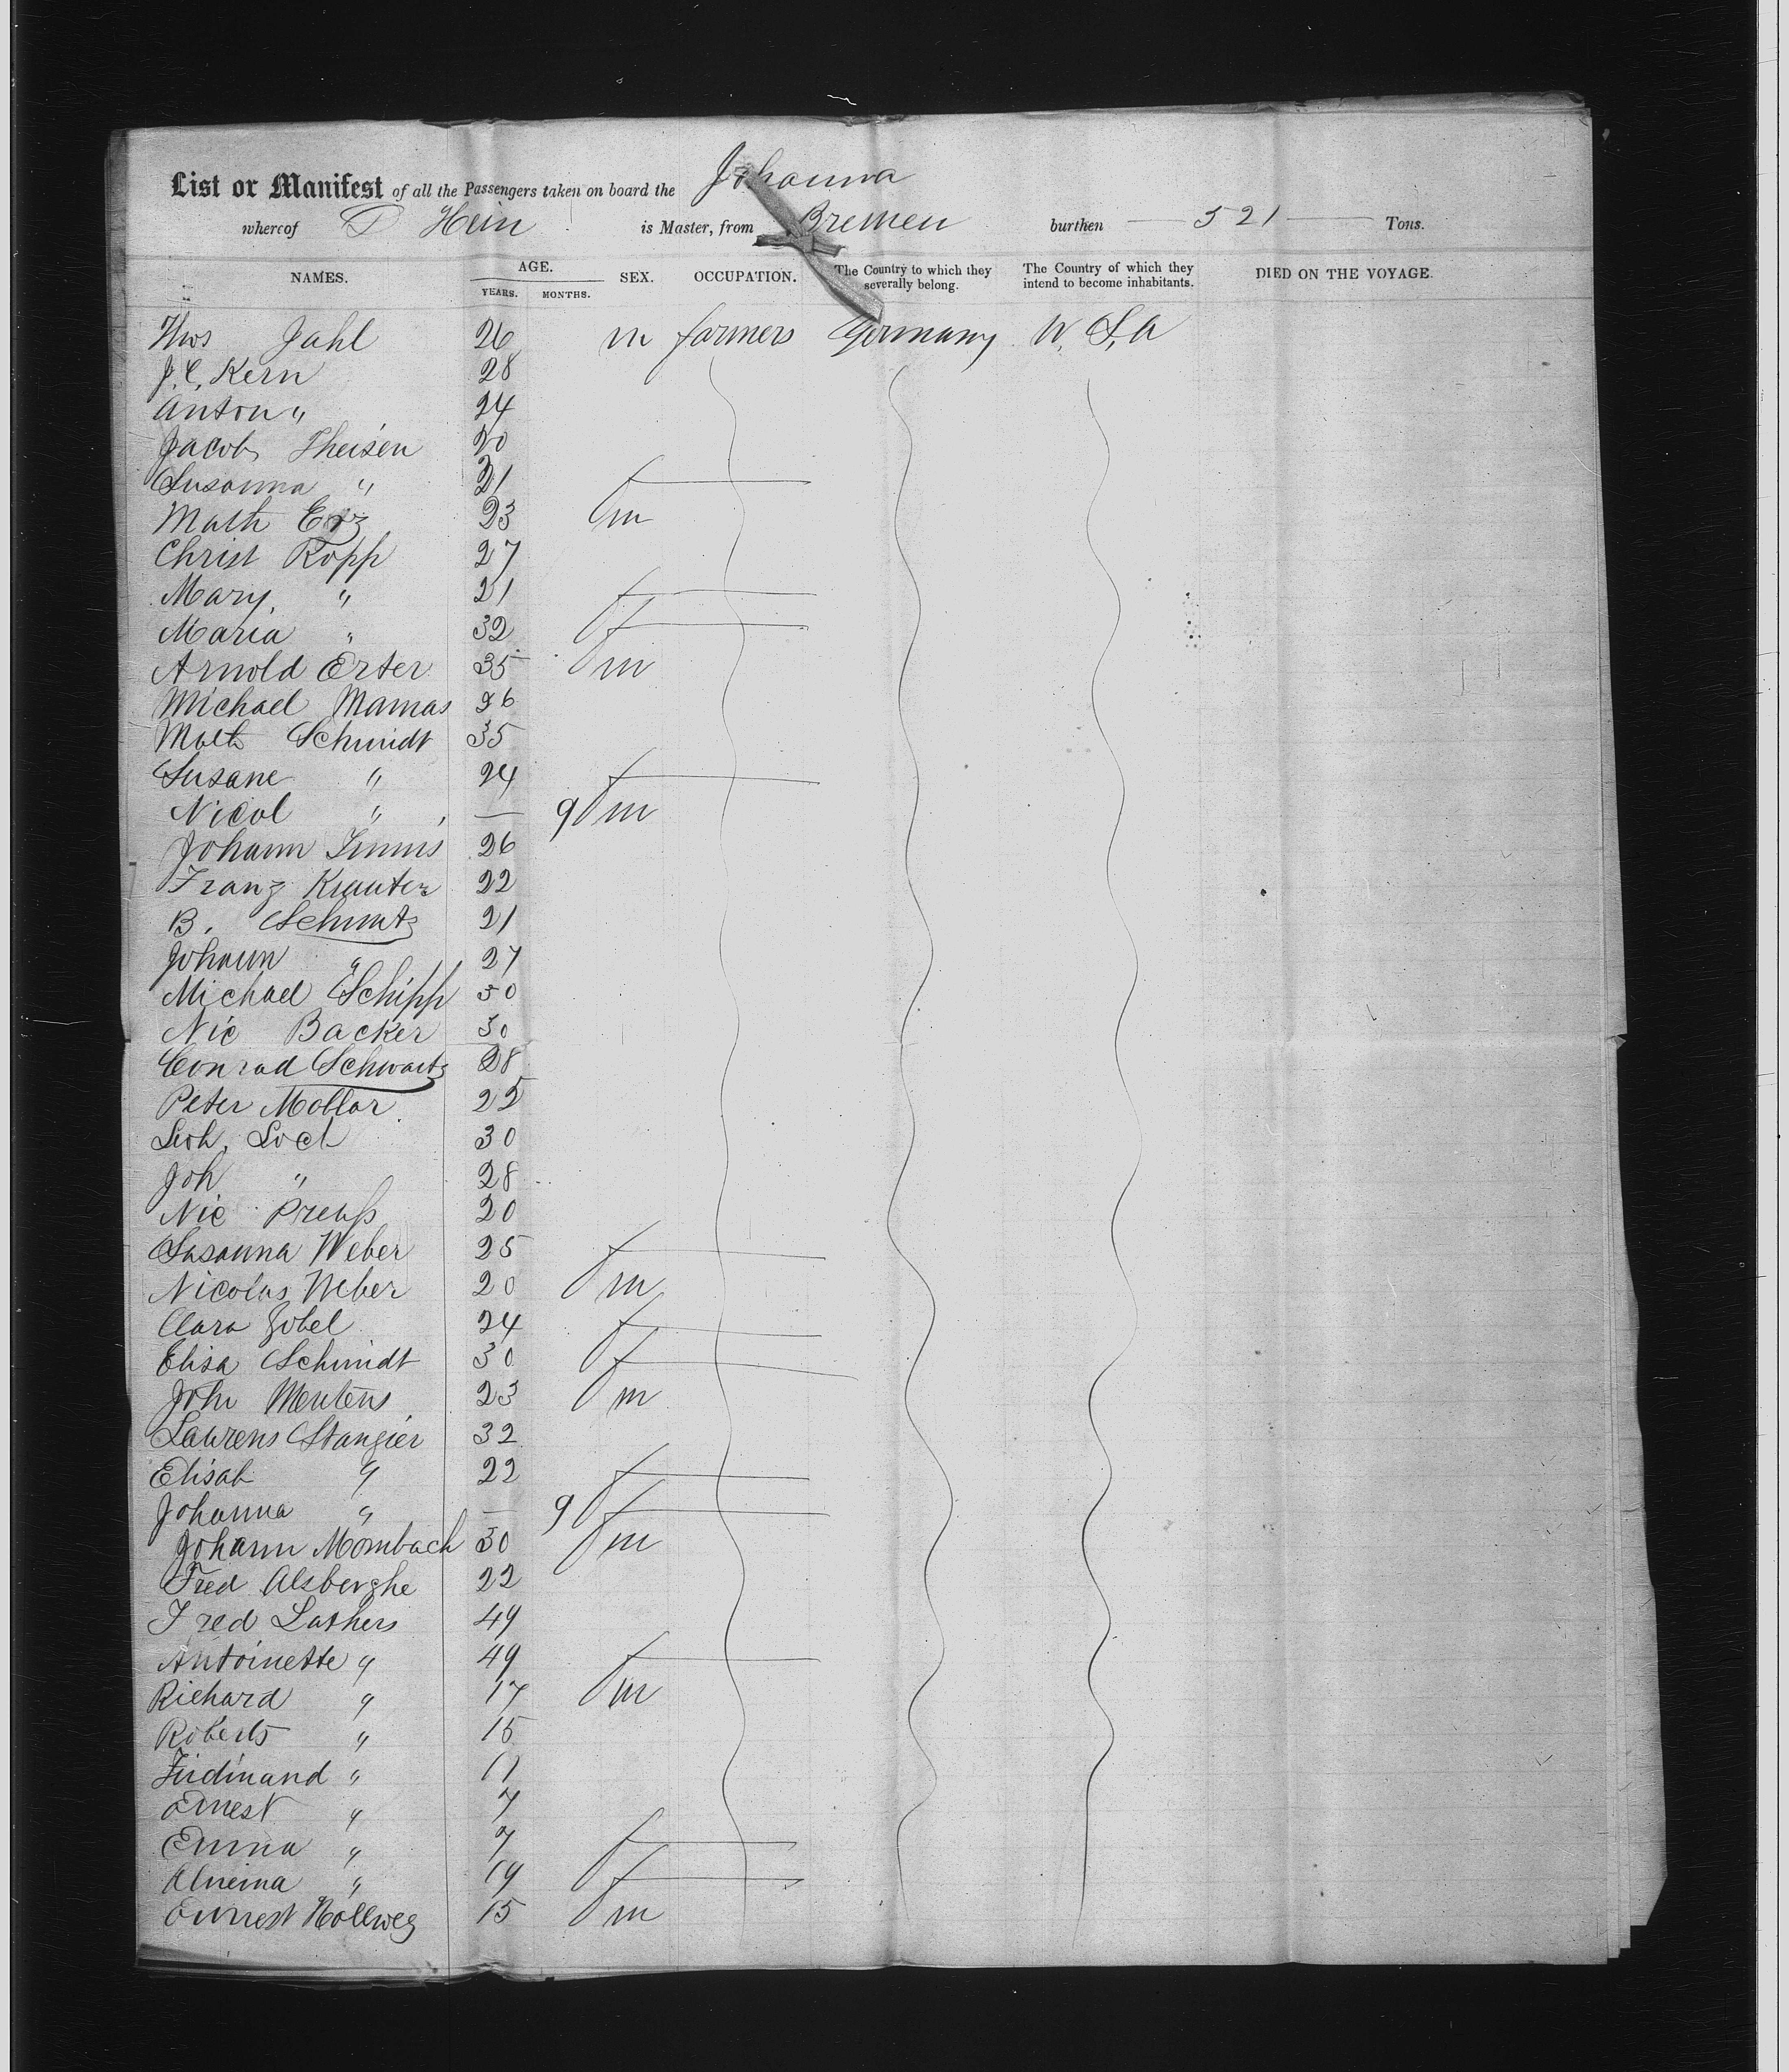 List or Manifest of all the Passengers taken on board the Johanna
whereof D Hein is Master, from Bremen burthen — 521 — Tons.
NAMES. AGE. YEARS. MONTHS. SEX. OCCUPATION. The Country to which they severally belong. The Country of which they intend to become inhabitants. DIED ON THE VOYAGE.
Jahl 26 m farmers Germany U. S, A
J. C. Kern 28
Anton " 24
Jacob Theisen 20
Susanna " 21 f
Math Erz 23 m
Christ Ropp 27
Mary, " 21 f
Maria " 32 f
Arnold Erter 35 m
Michael Mamas 26
Math Schmidt 35
Susane " 24 f
Nicol " — 9 m
Johann 26
Franz Krauter 22
B. Schmitz 21
Johann " 27
Michael Schipp 30
Nic Backer 30
Conrad Schwartz 28
Peter Mollar 25
30
Joh " 28
Nic Preuß 20
Susanna Weber 25 f
Nicolas Weber 20 m
Clara Gobel 24 f
Elisa Schmidt 30 f
John Mertens 23 m
Laurens Stangier 32
Elisab " 22 f
Johanna " — 9 f
Johann Mombach 30 m
Fred Alsberghe 22
Fred Luthers 49
Antoinette " 49 f
Richard " 17 m
Roberts " 15
Ferdinand " 11
Ernest " 7
Emma " 7 f
" 19 f
Ernest Hollweg 15 m